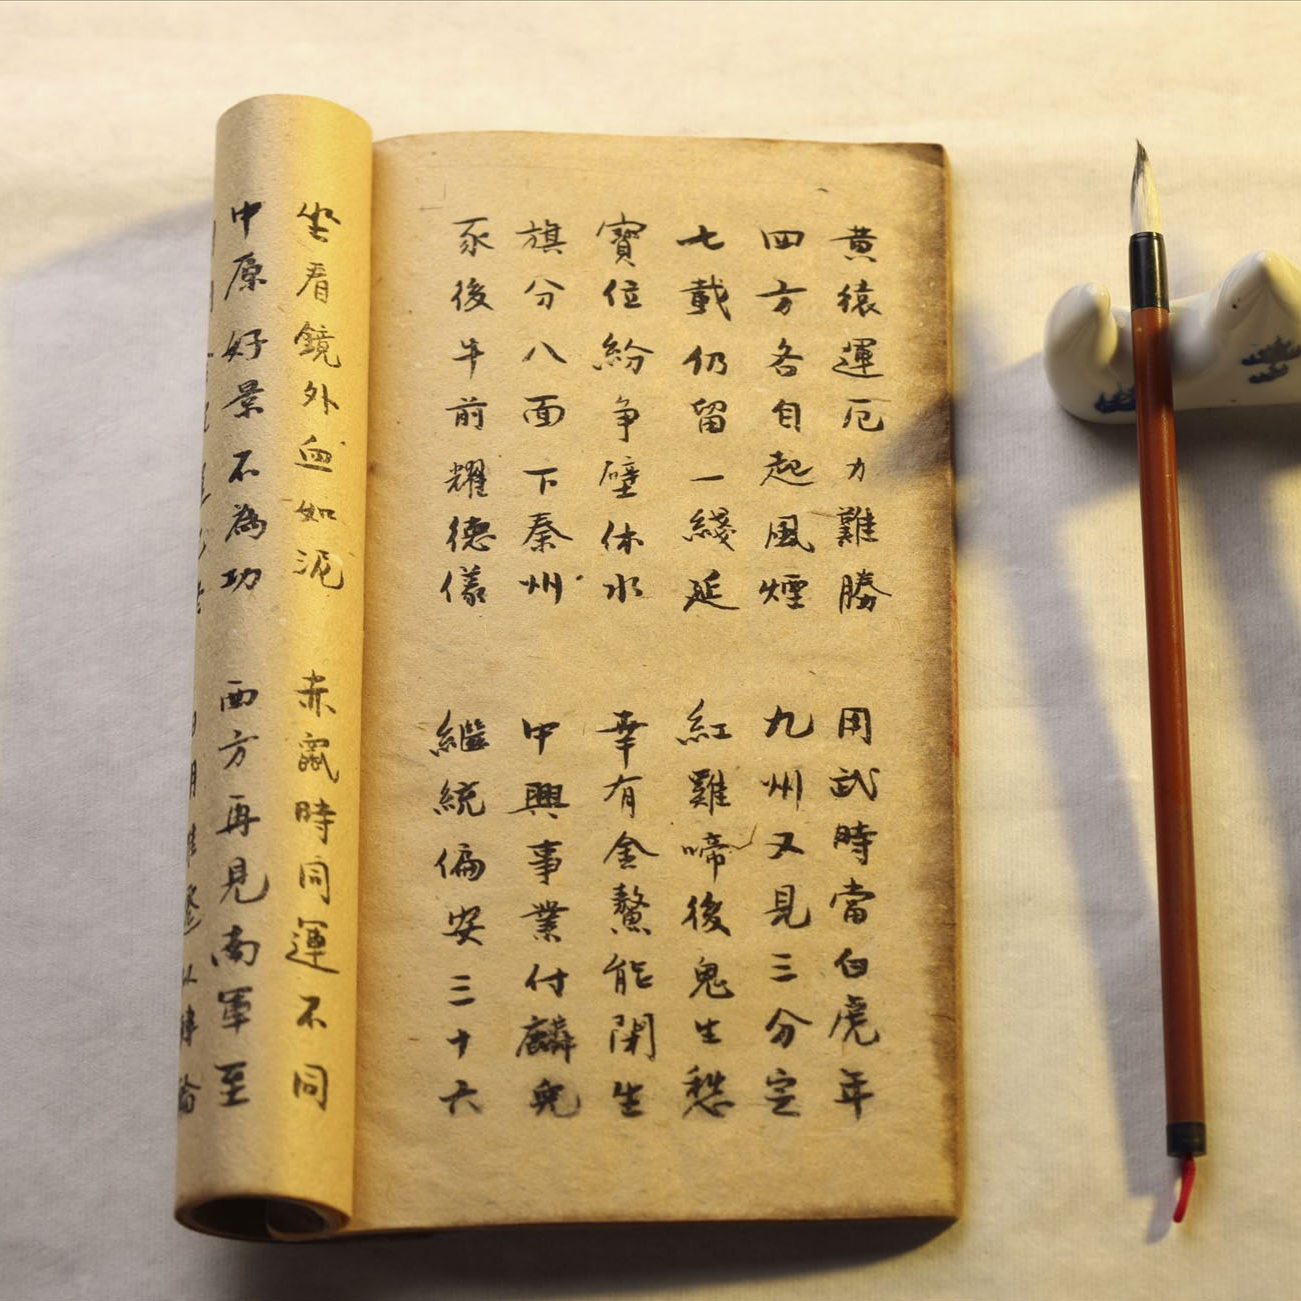 黄猿運厄力難勝 用武時當白虎年
四方各自起風煙 九州又見三分定
七載仍留一綫延 紅雞啼後鬼生愁
寶位紛争壁休水 幸有金鰲能閉生
旗分八面下秦州 中興事業付麟兒
豕後牛前耀德儀 繼統偏安三十六
坐看鏡外血如泥 赤鼠時同運不同
中原好景不為功 西方再見南軍至